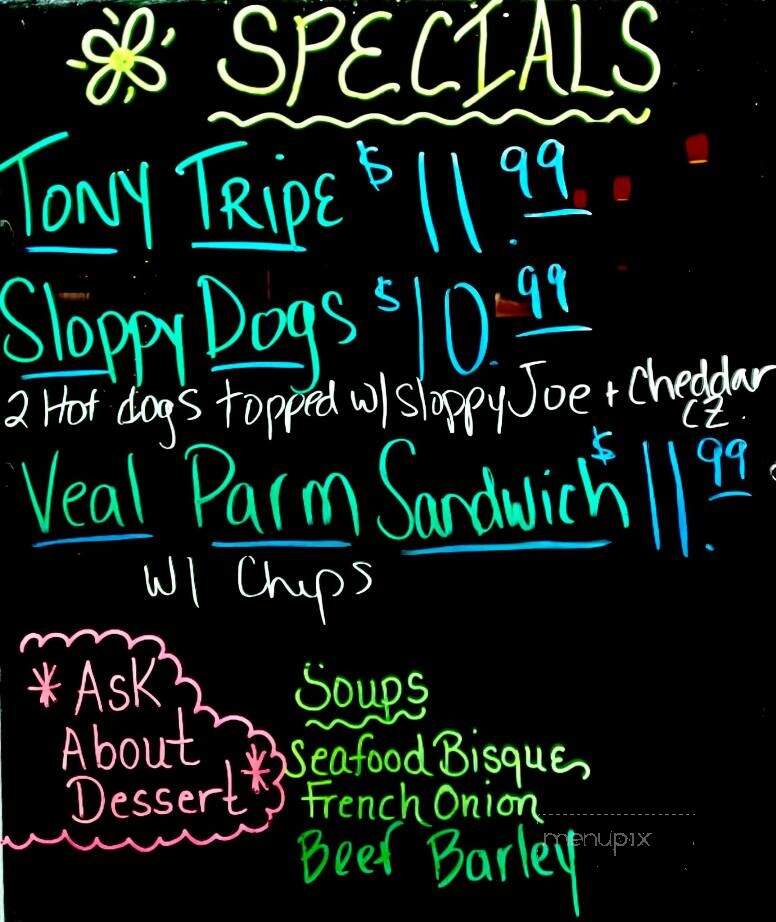 SPECIALS
TONY TRIPE $11.99
Sloppy Dogs $10.99
2 Hot dogs topped w/ sloppy Joe + Cheddar
CZ.
Veal Parm Sandwich $11.99
w/ Chips
* Ask
About
Dessert *
Soups
Seafood Bisque
French Onion
Beef Barley
menupix